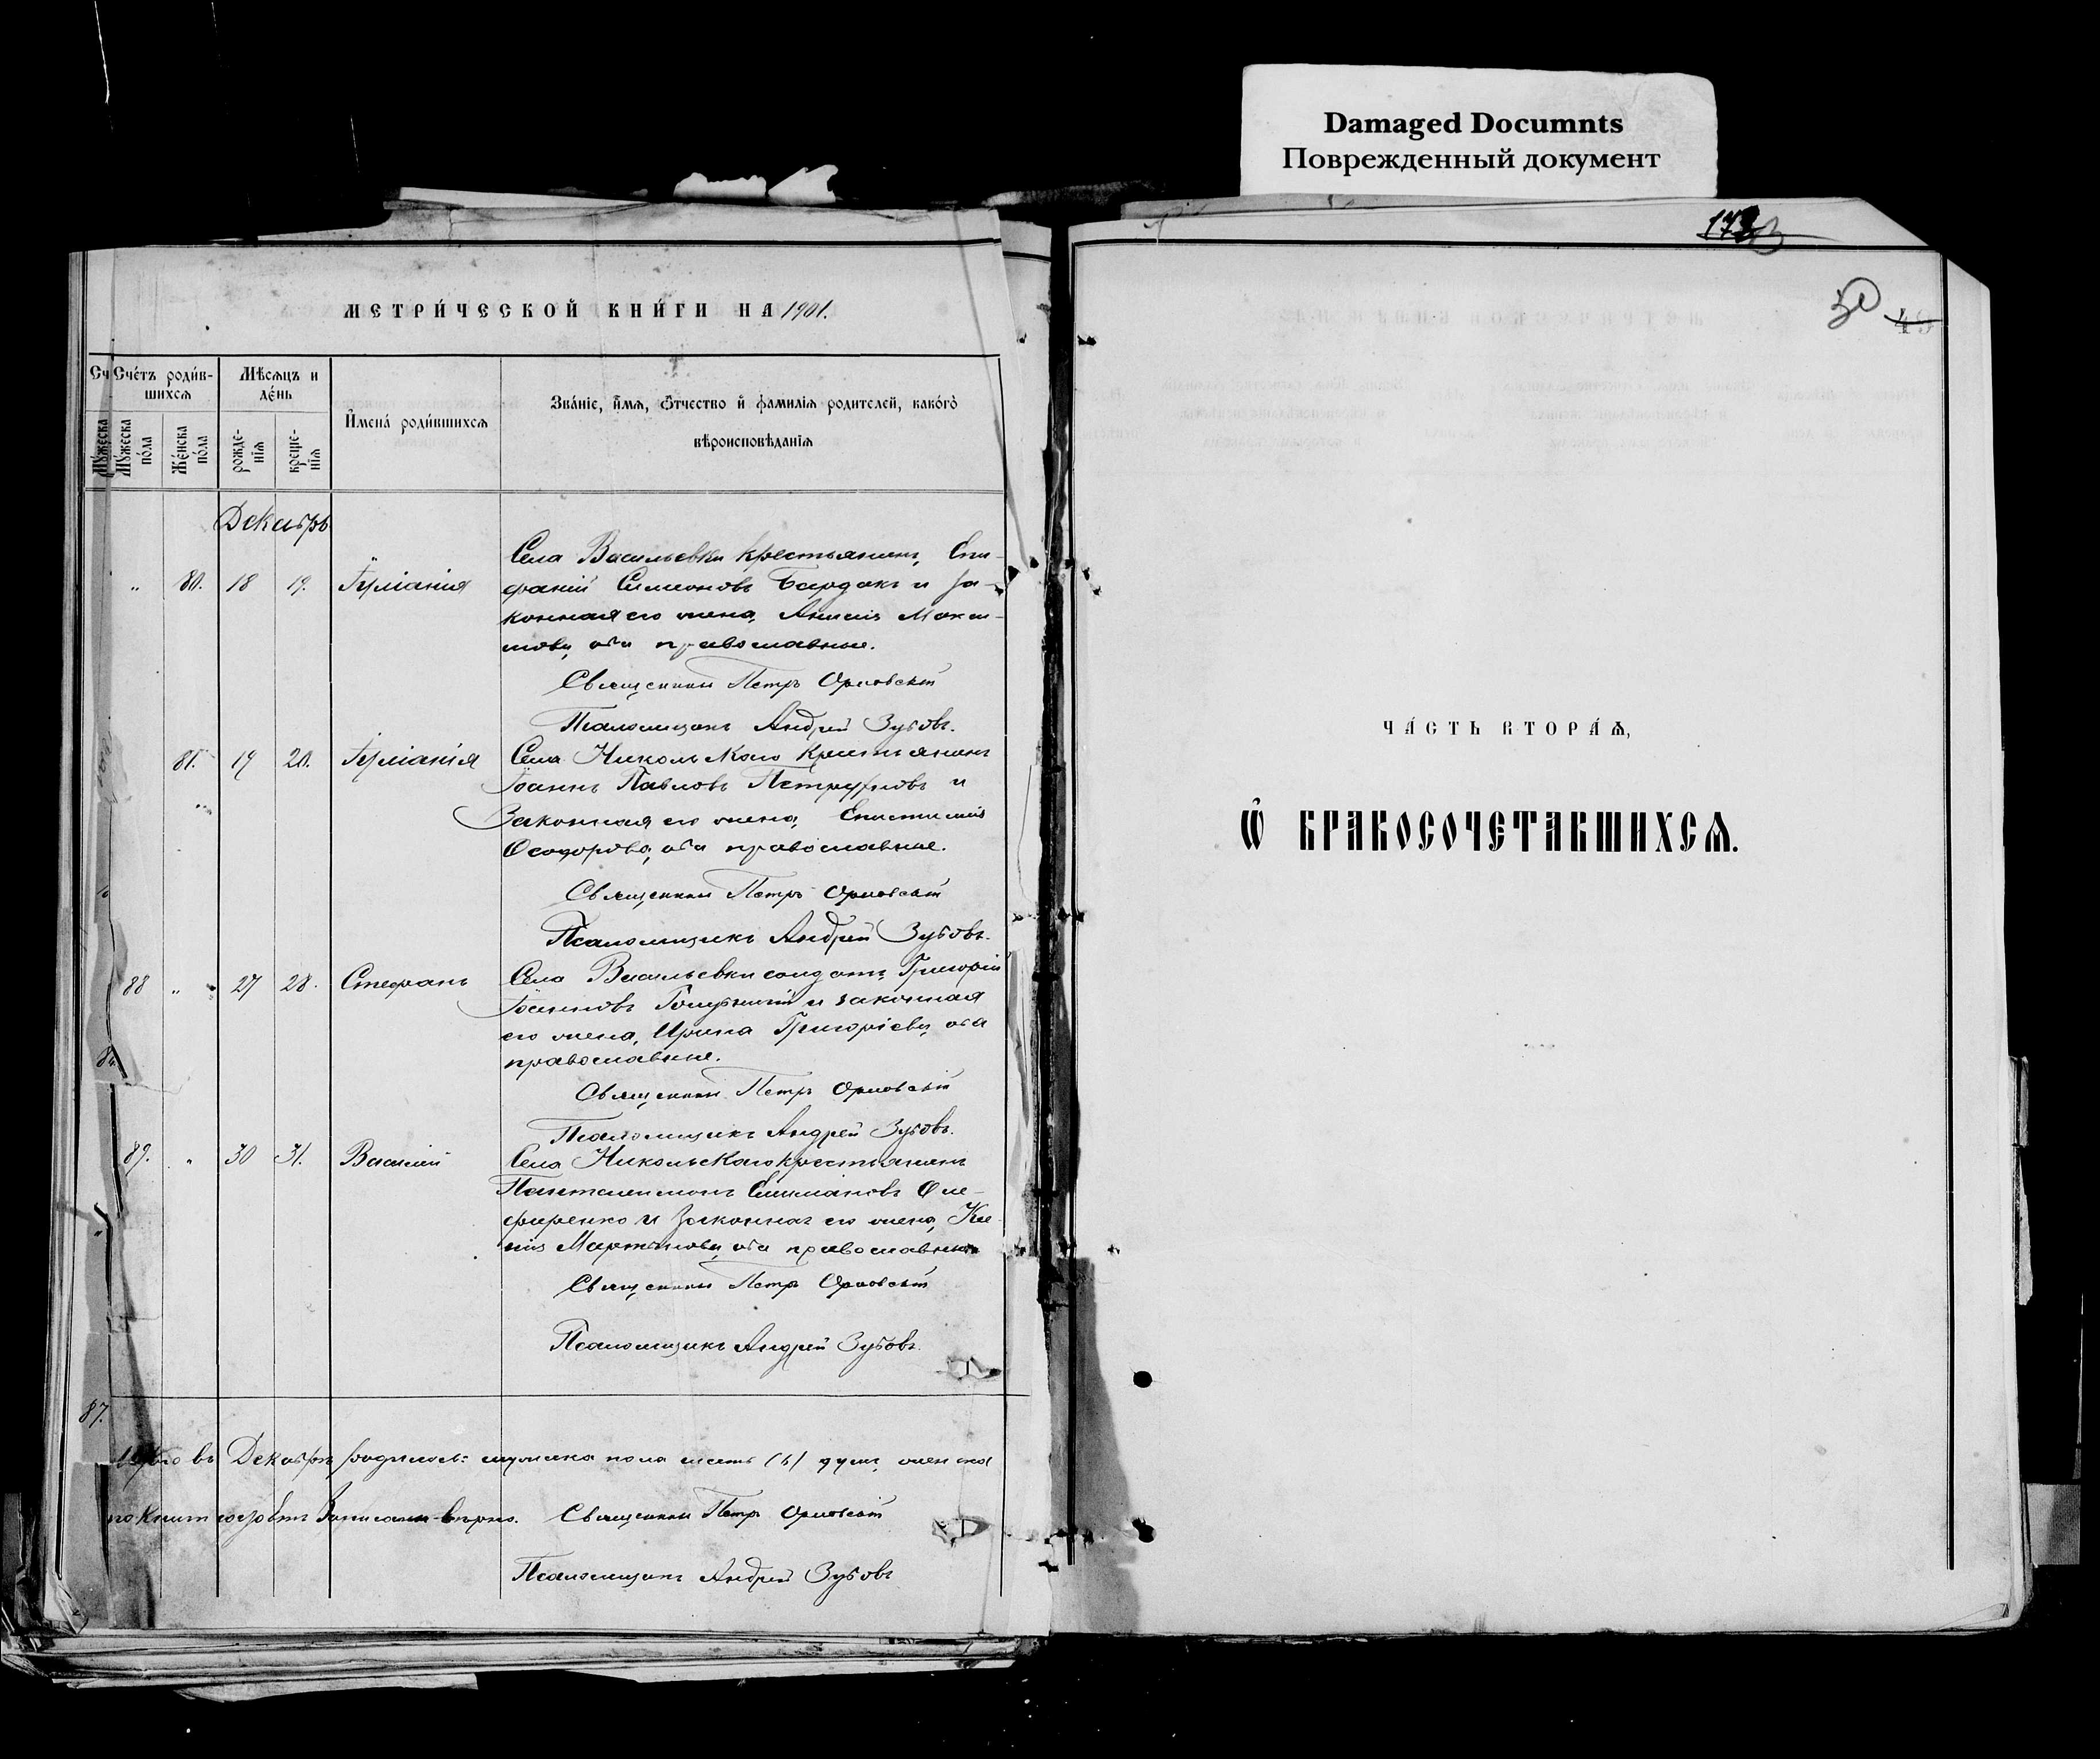 Damaged Documnts
Поврежденный документ
МЕТРИ́ЧЕСКОЙ КНИ́ГИ НА 1901.
Сч Сче́тъ роди́в-
шихсѧ
Мѣсѧцъ и
де́нь
И҆мена́ роди́вшихсѧ
Зва́нїе, и҆́мѧ, ѻ҆́тчество и҆ фамилїѧ родителей, како́гѡ
вѣроисповѣданїѧ
Мꙋ́жеска
Мꙋ́жеска
по́ла
Же́нска
по́ла
рожде-
нїѧ
креще-
нїѧ
Декабрь
„ 80. 18 19. Іуліанія
Села Васильевки крестьянинъ, Епи-
фаній Симеоновъ Бардакъ и за-
конная его жена, Анисія Макси-
мова, оба православные.
Священникъ Петръ Орловскій
Псаломщикъ Андрей Зубовъ.
81. 19 20. Іуліанія
Села Никольскаго крестьянинъ
Іоаннъ Павловъ и
Законная его жена, Епистимія
Ѳеодорова, оба православные.
Священникъ Петръ Орловскій
Псаломщикъ Андрей Зубовъ.
88 „ 27 28. Стефанъ
Села Васильевки солдатъ, Григорій
Іоанновъ и законная
его жена, Ирина Григоріева, оба
православные.
Священникъ Петръ Орловскій
Псаломщикъ Андрей Зубовъ.
89. „ 30 31. Василій
Села Никольскаго крестьянинъ
Пантелеимонъ Оле-
фиренко и Законная его жена,
Мартинова, оба православные
Священникъ Петръ Орловскій
Псаломщикъ Андрей Зубовъ.
87.
въ Декабрѣ родилось: мужеска пола шесть (6) душъ, женска
Священникъ Петръ Орловскій
Псаломщикъ Андрей Зубовъ
49
ЧА́СТЬ ВТОРА́Ѧ,
Ѽ БРАКОСОЧЕТАВШИХСѦ.